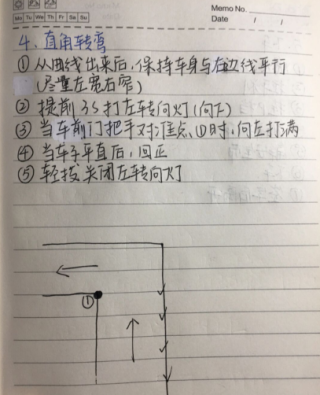 Memo No.
Mo Tu We Th Fr Sa Su
Date / /
4、直角转弯
① 从曲线出来后,保持车身与右边线平行
(尽量左宽右窄)
② 提前3S打左转向灯(向下)
③ 当车前门把手对准点①时,向左打满
④ 当车子平直后,回正
⑤ 轻拨关闭左转向灯
①